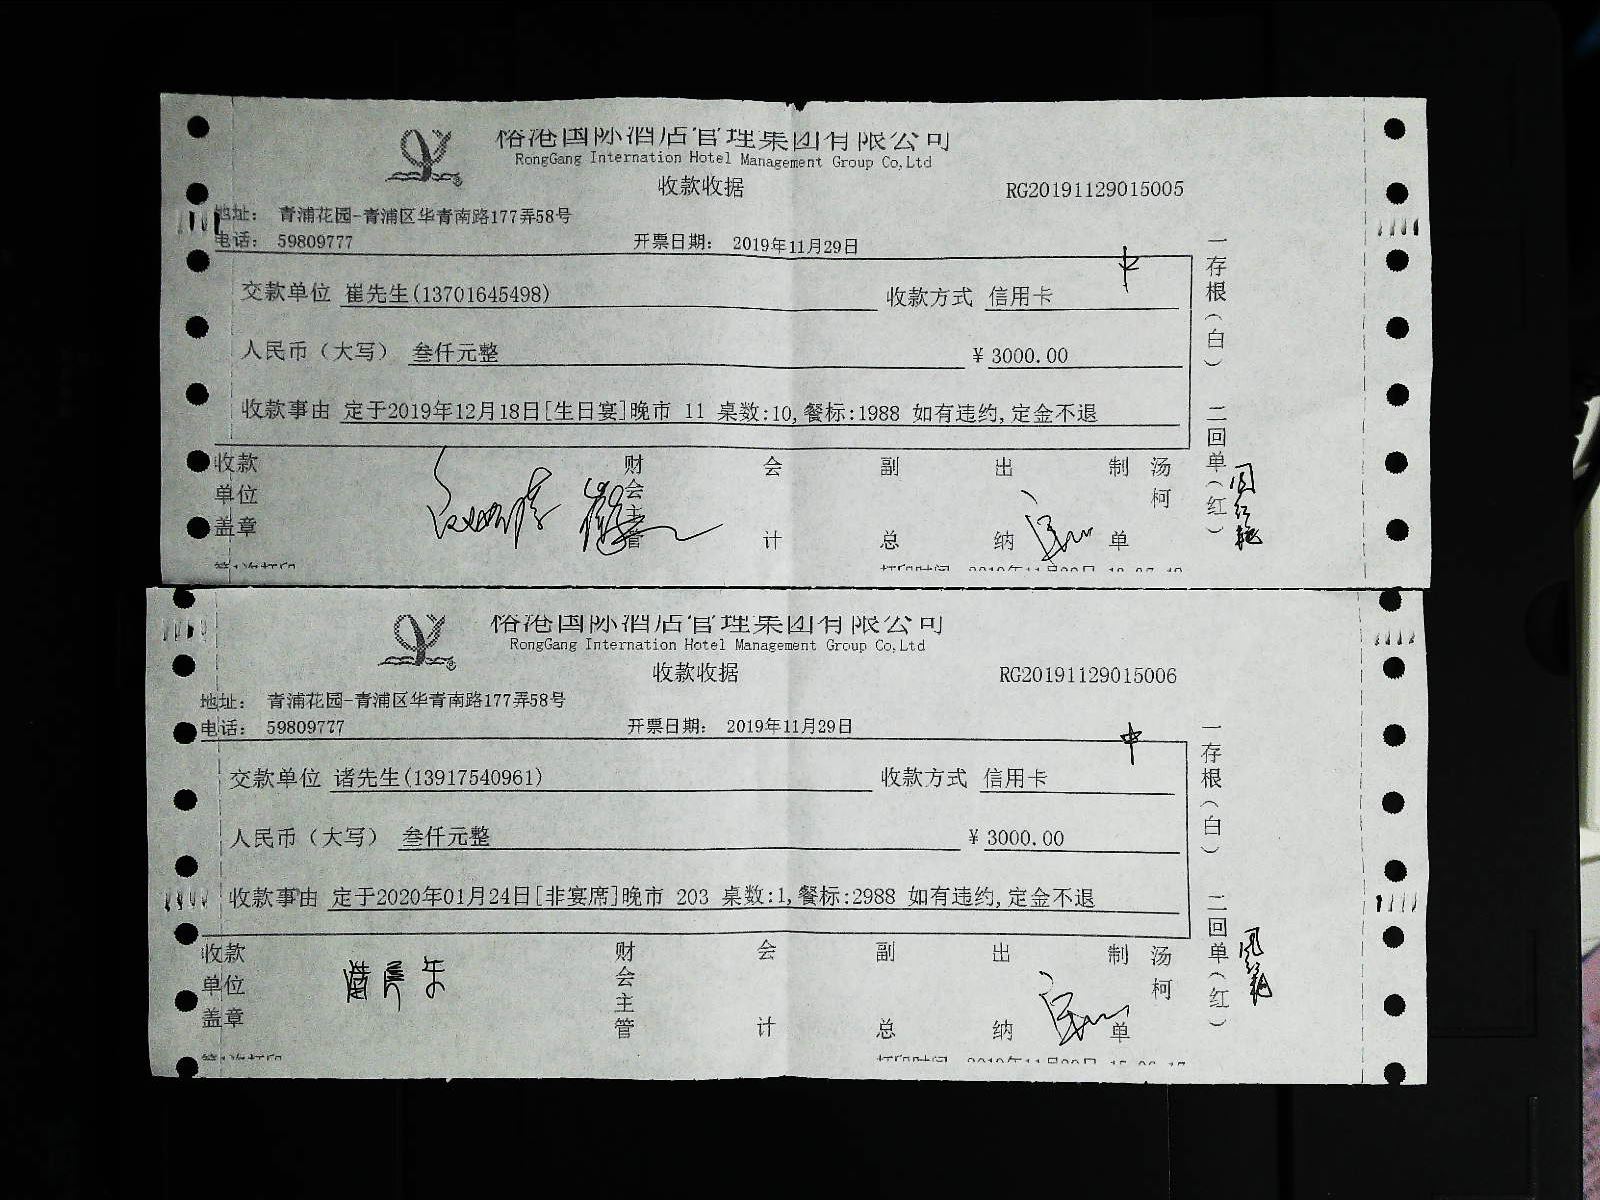 榕港国际酒店管理集团有限公司
RongGang Internation Hotel Management Group Co,Ltd
收款收据
RG20191129015005
地址: 青浦花园-青浦区华青南路177弄58号
电话: 59809777
开票日期: 2019年11月29日
中
交款单位 崔先生(13701645498)
收款方式 信用卡
人民币(大写) 叁仟元整
¥ 3000.00
收款事由 定于2019年12月18日[生日宴]晚市 11 桌数:10,餐标:1988 如有违约,定金不退
一存根(白) 二回单(红)
收款单位盖章
财会主管
会计
副总
出纳
制单
汤柯
周红艳
第1次打印
榕港国际酒店管理集团有限公司
RongGang Internation Hotel Management Group Co,Ltd
收款收据
RG20191129015006
地址: 青浦花园-青浦区华青南路177弄58号
电话: 59809777
开票日期: 2019年11月29日
中
交款单位 诸先生(13917540961)
收款方式 信用卡
人民币(大写) 叁仟元整
¥ 3000.00
收款事由 定于2020年01月24日[非宴席]晚市 203 桌数:1,餐标:2988 如有违约,定金不退
一存根(白) 二回单(红)
收款单位盖章
财会主管
会计
副总
出纳
制单
汤柯
第1次打印